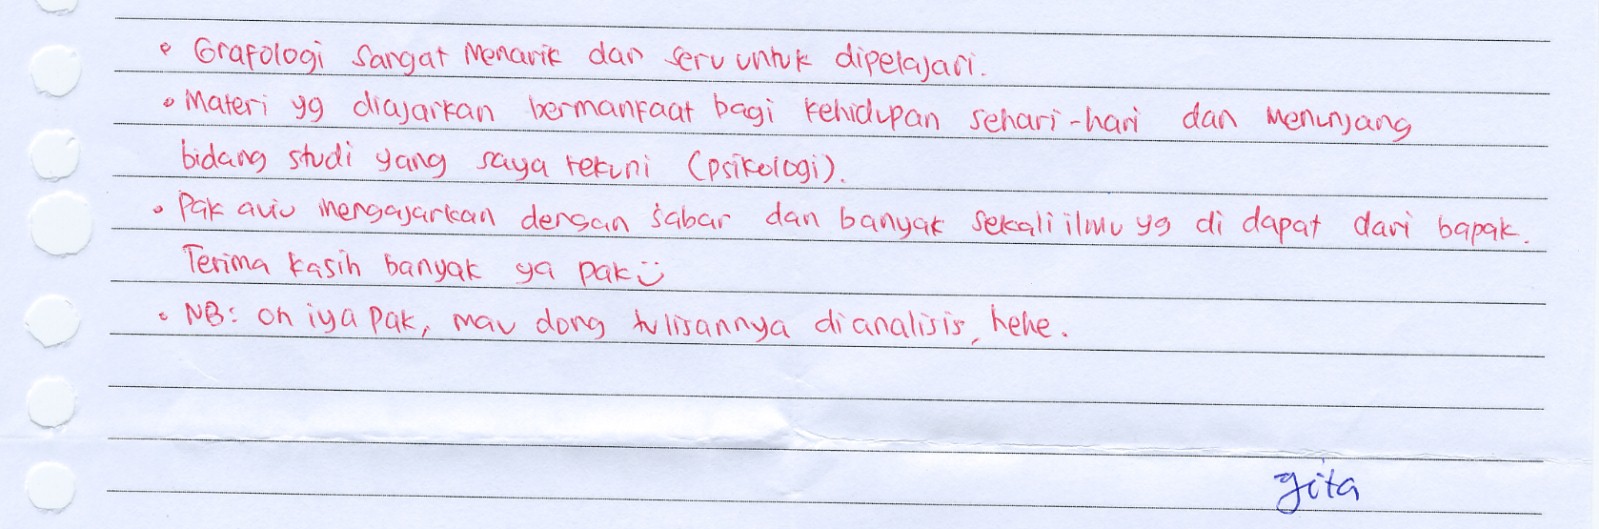 • Grafologi sangat menarik dan seru untuk dipelajari.
• Materi yg diajarkan bermanfaat bagi kehidupan sehari-hari dan menunjang
bidang studi yang saya tekuni (psikologi).
• Pak aviv mengajarkan dengan sabar dan banyak sekali ilmu yg di dapat dari bapak.
Terima kasih banyak ya pak ü
• NB: oh iya pak, mau dong tulisannya dianalisis, hehe.
gita